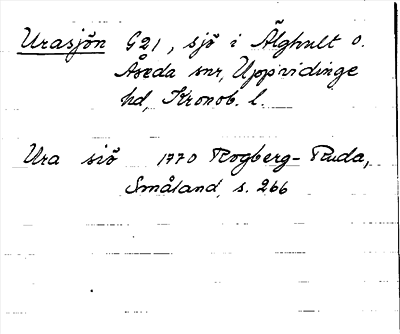 Urasjön G21, sjö i Älghult o.
Åseda snr, Uppvidinge
hd, Kronob. l.
Ura siö 1770 Rogberg-Ruda,
Småland, s. 266